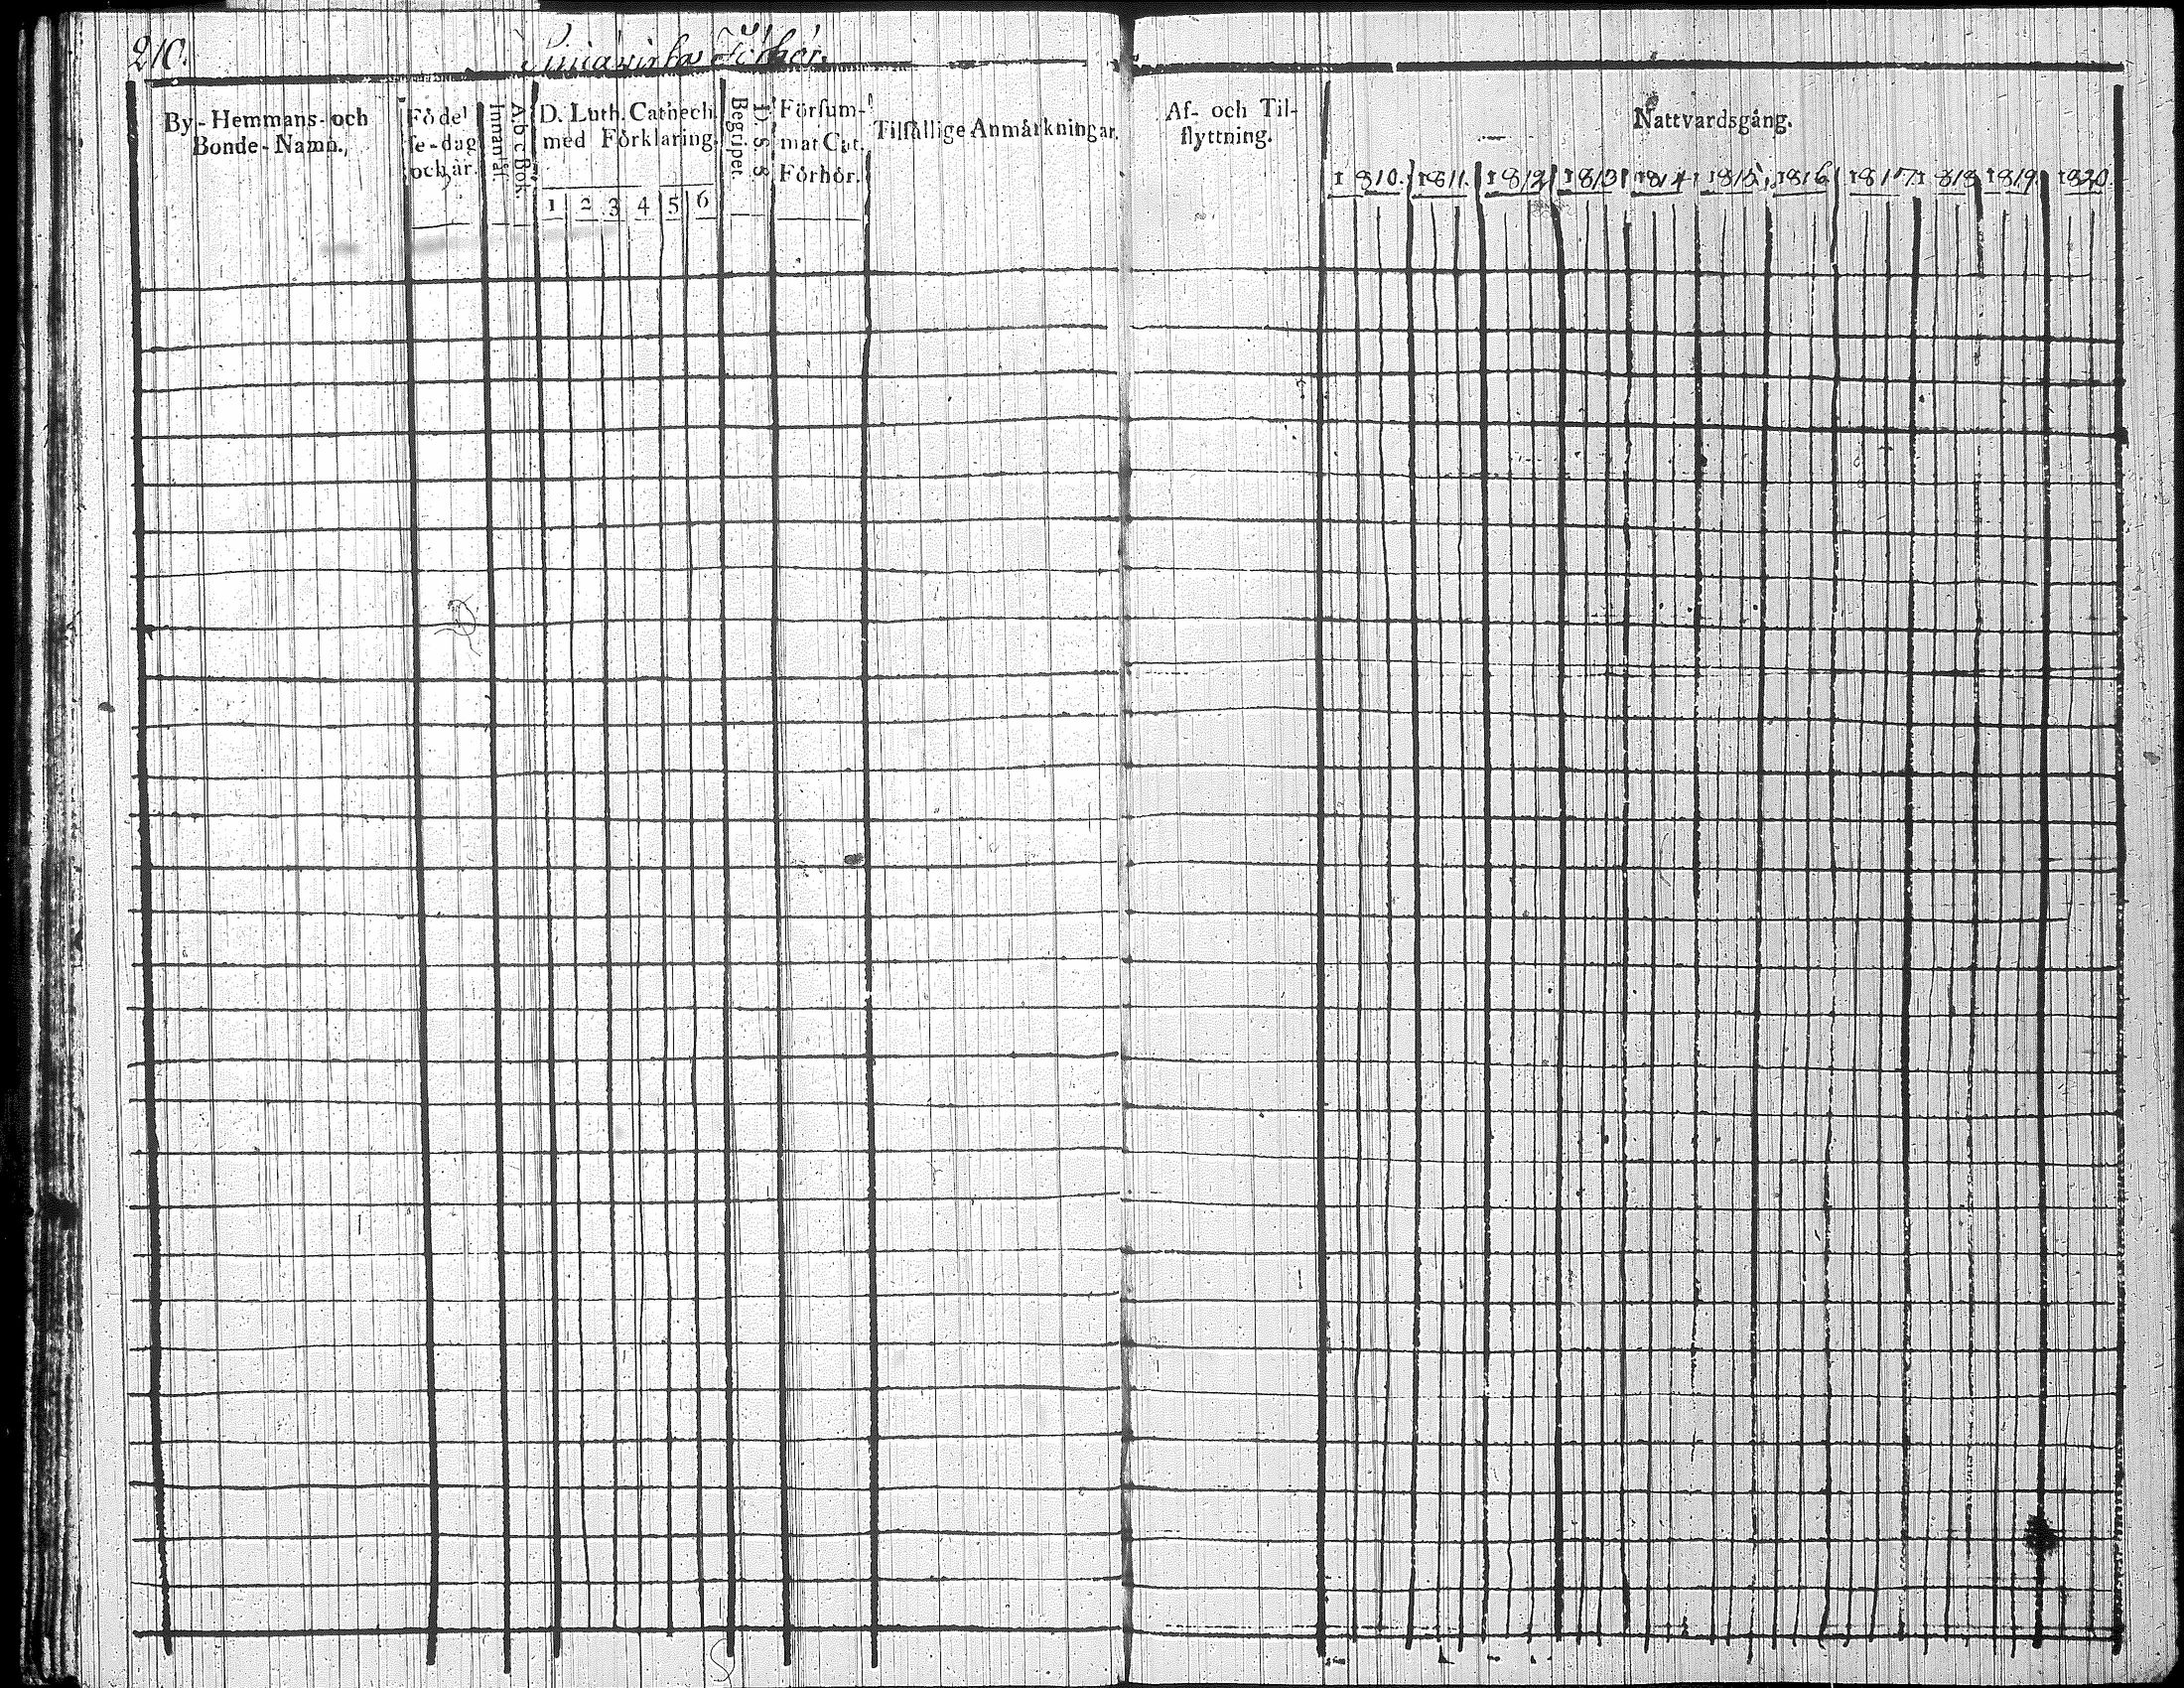 210.
Förhör.
By-Hemmans-och
Bonde-Namn.
Födel
se-dag
och år.
Innantil.
Abc Bok.
D. Luth. Cathech.
med Förklaring.
1 2 3 4 5 6
Begriper.
D. S. S.
Försum-
mat Cat.
Förhör.
Tilfällige Anmärkningar.
Af- och Til-
flyttning.
Nattvardsgång.
1810. 1811. 1812 1813 1814 1815, 1816 1817 1818 1819. 1820.